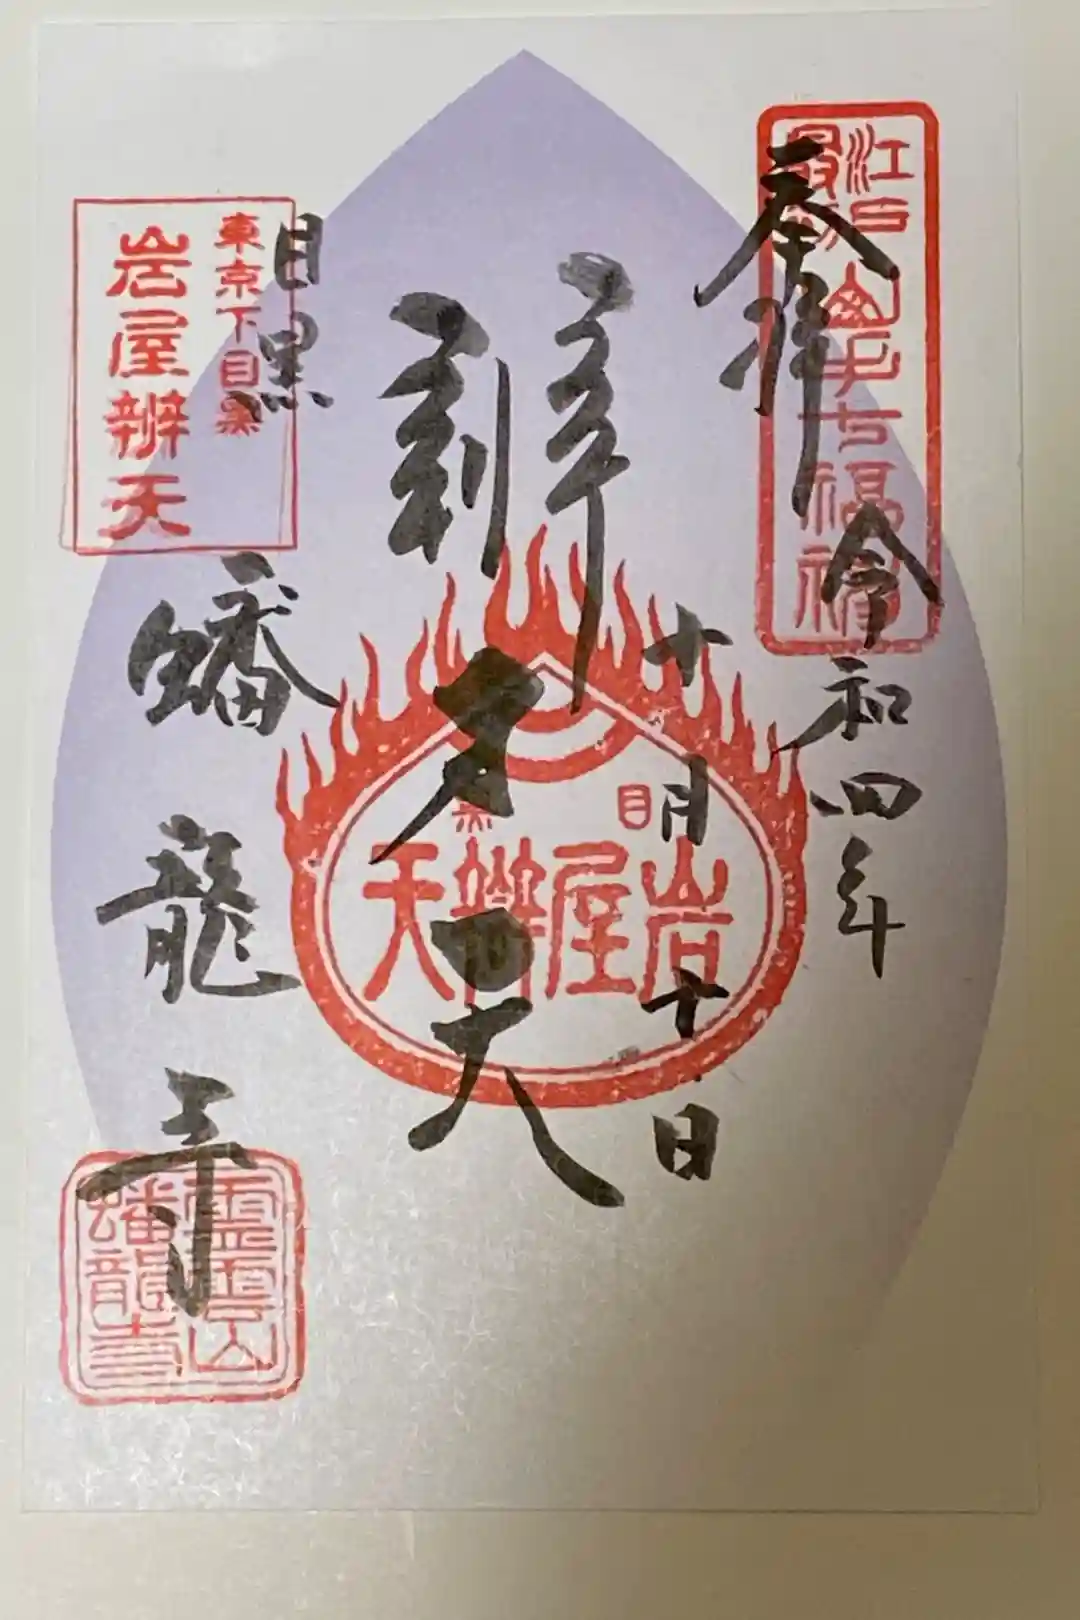 奉拝
令和四年
十月十日
江戸最初山手七福神
辨才天
目黒
岩屋辨天
目黒
蟠龍寺
東京下目黒
岩屋辨天
霊雲山
蟠龍寺